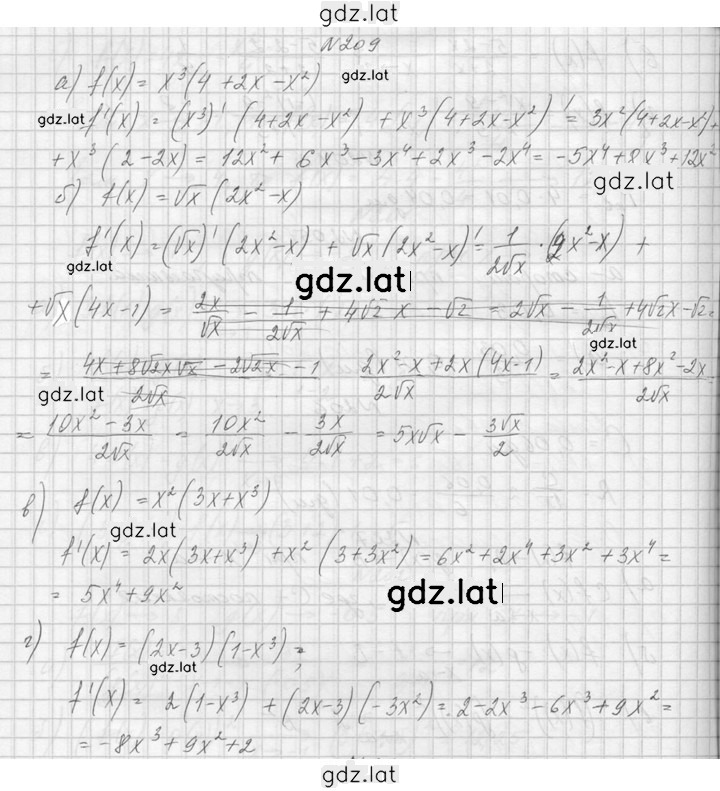 gdz.lat
№209
а) f(x) = x³(4 + 2x - x²)
gdz.lat
gdz.lat f'(x) = (x³)' (4+2x-x²) + x³(4+2x-x²)' = 3x²(4+2x-x²)+
+x³(2-2x) = 12x² + 6x³ - 3x⁴ + 2x³ - 2x⁴ = -5x⁴+8x³+12x²
gdz.lat
б) f(x) = √x (2x² - x)
f'(x) = (√x)' (2x²-x) + √x (2x²-x)' = 1/(2√x) · (2x²-x) +
gdz.lat
+√x(4x-1) = 2x/√x - 1/(2√x) + 4√2 x - √2 = 2√x - 1/(2√x) + 4√2x - √2 =
gdz.lat
= (4x+8√2x√x - 2√2x - 1)/(2√x) (2x²-x+2x(4x-1))/(2√x) = (2x²-x+8x²-2x)/(2√x)
gdz.lat
= (10x² - 3x)/(2√x) = 10x²/(2√x) - 3x/(2√x) = 5x√x - 3√x/2
в) f(x) = x²(3x+x³)
gdz.lat
f'(x) = 2x(3x+x³) + x²(3+3x²) = 6x²+2x⁴+3x²+3x⁴ =
= 5x⁴+9x²
gdz.lat
г) f(x) = (2x-3)(1-x³);
gdz.lat
f'(x) = 2(1-x³) + (2x-3)(-3x²) = 2-2x³-6x³+9x² =
= -8x³+9x²+2
gdz.lat